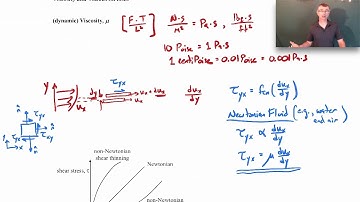 (dynamic) Viscosity, μ
[F·T / L²] N·s / m² = Pa·s, lbf·s / ft²
10 Poise = 1 Pa·s
1 centiPoise = 0.01 Poise = 0.001 Pa·s
y dy uₓ uₓ + duₓ duₓ/dy
τyx = fcn(duₓ/dy)
Newtonian Fluid (e.g., water and air)
τyx ∝ duₓ/dy
τyx = μ duₓ/dy
τyx
τxy
n̂
y
x
non-Newtonian
shear thinning
Newtonian
shear stress, τ
non-Newtonian